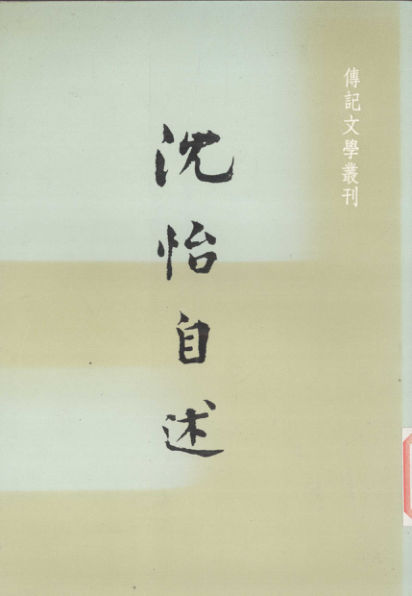 傳記文學叢刊
沈怡自述